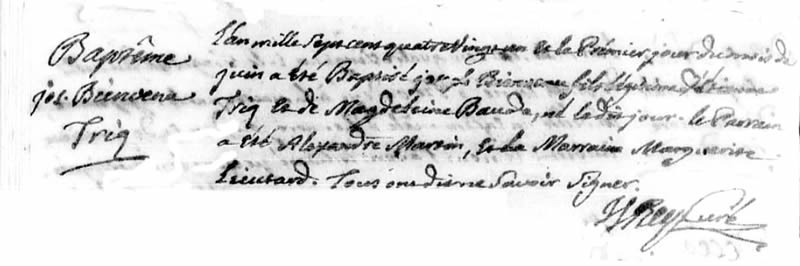 Baptême
jos. Bienvenu
Triq
L'an mille Sept cent quatre Vingt un et le Prémier jour du mois de
juin a été Baptisé joseph Bienvenu fils légitime d'étienne
Triq et de Magdeleine Baude, né le dit jour. le Parrain
a été Alexandre Martin, et la Marraine Marguerite
Lieutard. Tous ont dit ne Savoir Signer.
Rey Curé